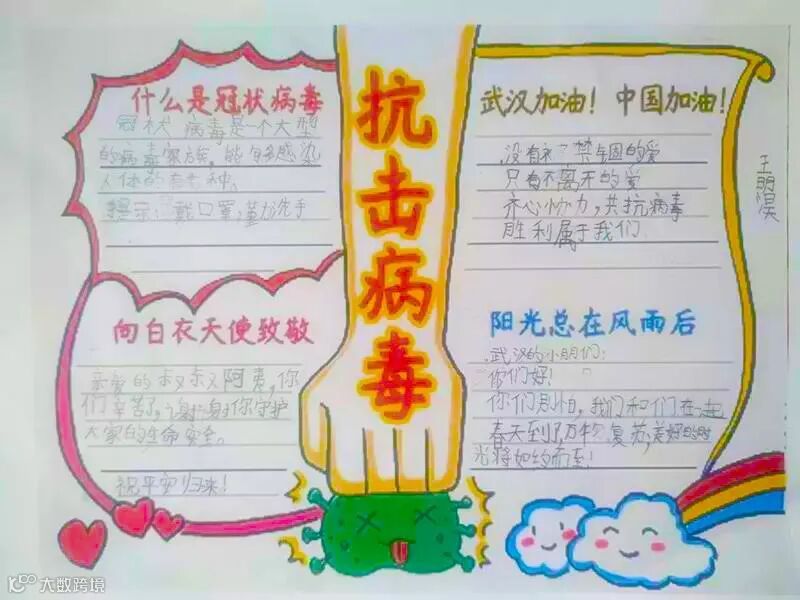 什么是冠状病毒
冠状病毒是一个大型
的病毒家族,能够感染
人体的有七种。
提示:戴口罩,勤洗手
抗击病毒
武汉加油!中国加油!
没有被禁锢的爱
只有不离不的爱
齐心协力,共抗病毒
胜利属于我们
王明昊
向白衣天使致敬
亲爱的叔叔阿姨,你
们辛苦了,谢谢你守护
大家的生命安全。
祝平安归来!
阳光总在风雨后
武汉的小朋们:
你们好!
你们别怕,我们和们在一起
春天到了,万物复苏,美好的时
光将如约而至!
大数跨境